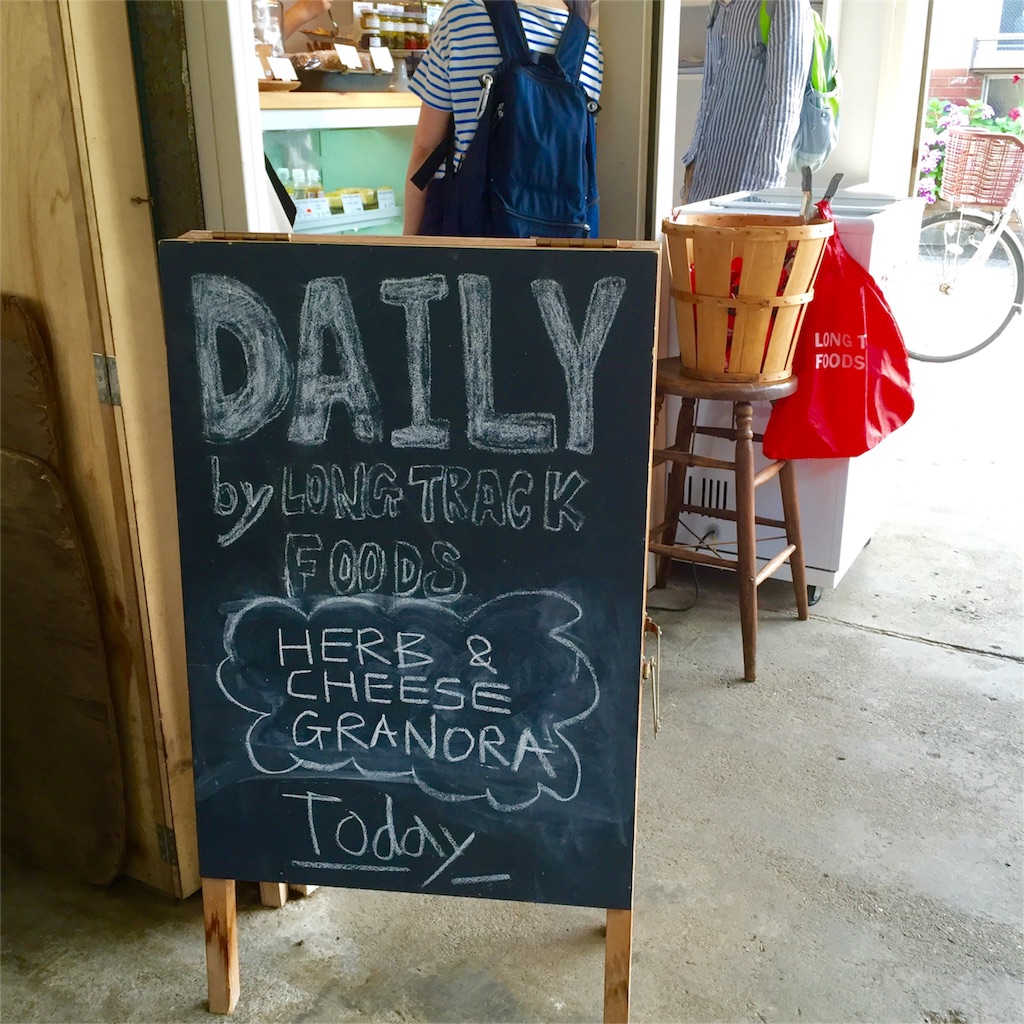 DAILY
by LONG TRACK
FOODS
HERB &
CHEESE
GRANORA
Today
LONG T
FOODS